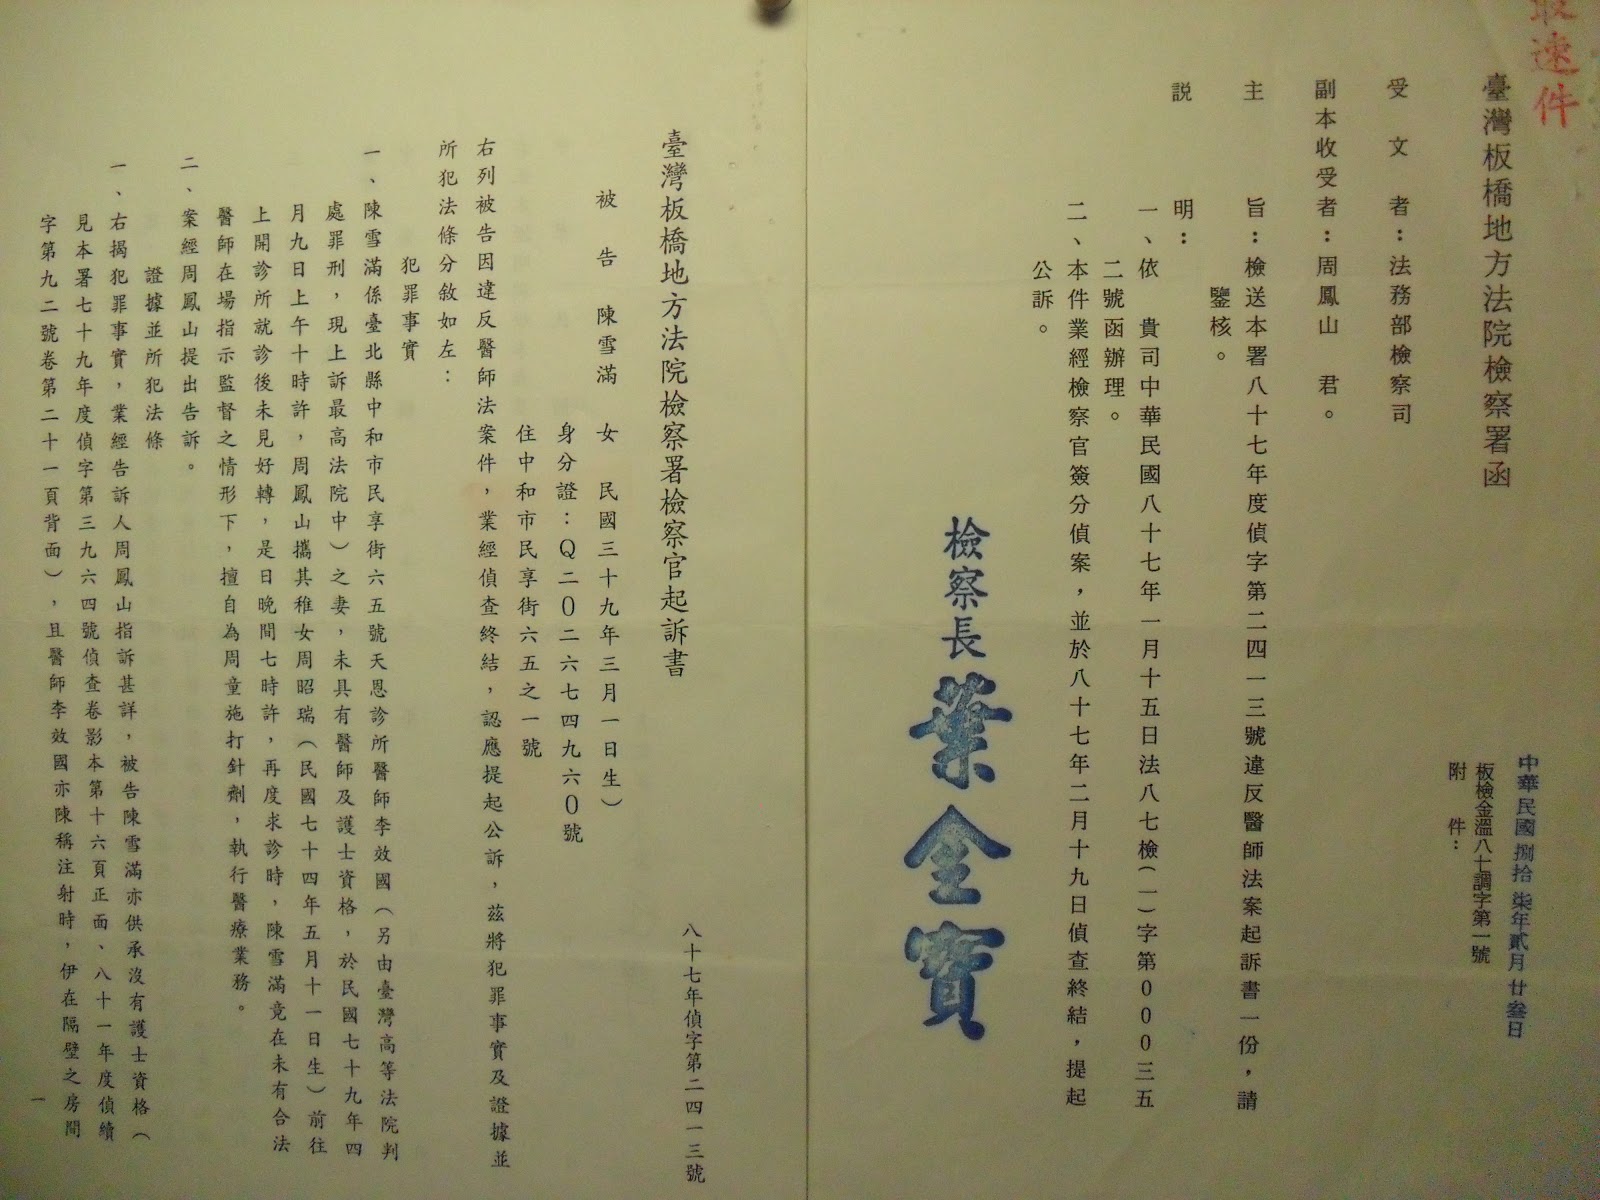 最速件
臺灣板橋地方法院檢察署函
中華民國捌拾柒年貳月廿叁日
板檢金溫八七調字第一號
附件：
受文者：法務部檢察司
副本收受者：周鳳山　君。
主旨：檢送本署八十七年度偵字第二四一三號違反醫師法案起訴書一份，請
鑒核。
説明：
一、依　貴司中華民國八十七年一月十五日法八七檢（一）字第０００三五
二號函辦理。
二、本件業經檢察官簽分偵案，並於八十七年二月十九日偵查終結，提起
公訴。
檢察長葉金寶
臺灣板橋地方法院檢察署檢察官起訴書
八十七年偵字第二四一三號
被告　陳雪滿　女　民國三十九年三月一日生）
身分證：Ｑ二０二六七四九六０號
住中和市民享街六五之一號
右列被告因違反醫師法案件，業經偵查終結，認應提起公訴，茲將犯罪事實及證據並
所犯法條分敘如左：
犯罪事實
一、陳雪滿係臺北縣中和市民享街六五號天恩診所醫師李效國（另由臺灣高等法院判
處罪刑，現上訴最高法院中）之妻，未具有醫師及護士資格，於民國七十九年四
月九日上午十時許，周鳳山攜其稚女周昭瑞（民國七十四年五月十一日生）前往
上開診所就診後未見好轉，是日晚間七時許，再度求診時，陳雪滿竟在未有合法
醫師在場指示監督之情形下，擅自為周童施打針劑，執行醫療業務。
二、案經周鳳山提出告訴。
證據並所犯法條
一、右揭犯罪事實，業經告訴人周鳳山指訴甚詳，被告陳雪滿亦供承沒有護士資格（
見本署七十九年度偵字第三九六四號偵查卷影本第十六頁正面、八十一年度偵續
字第九二號卷第二十一頁背面），且醫師李效國亦陳稱注射時，伊在隔壁之房間
一